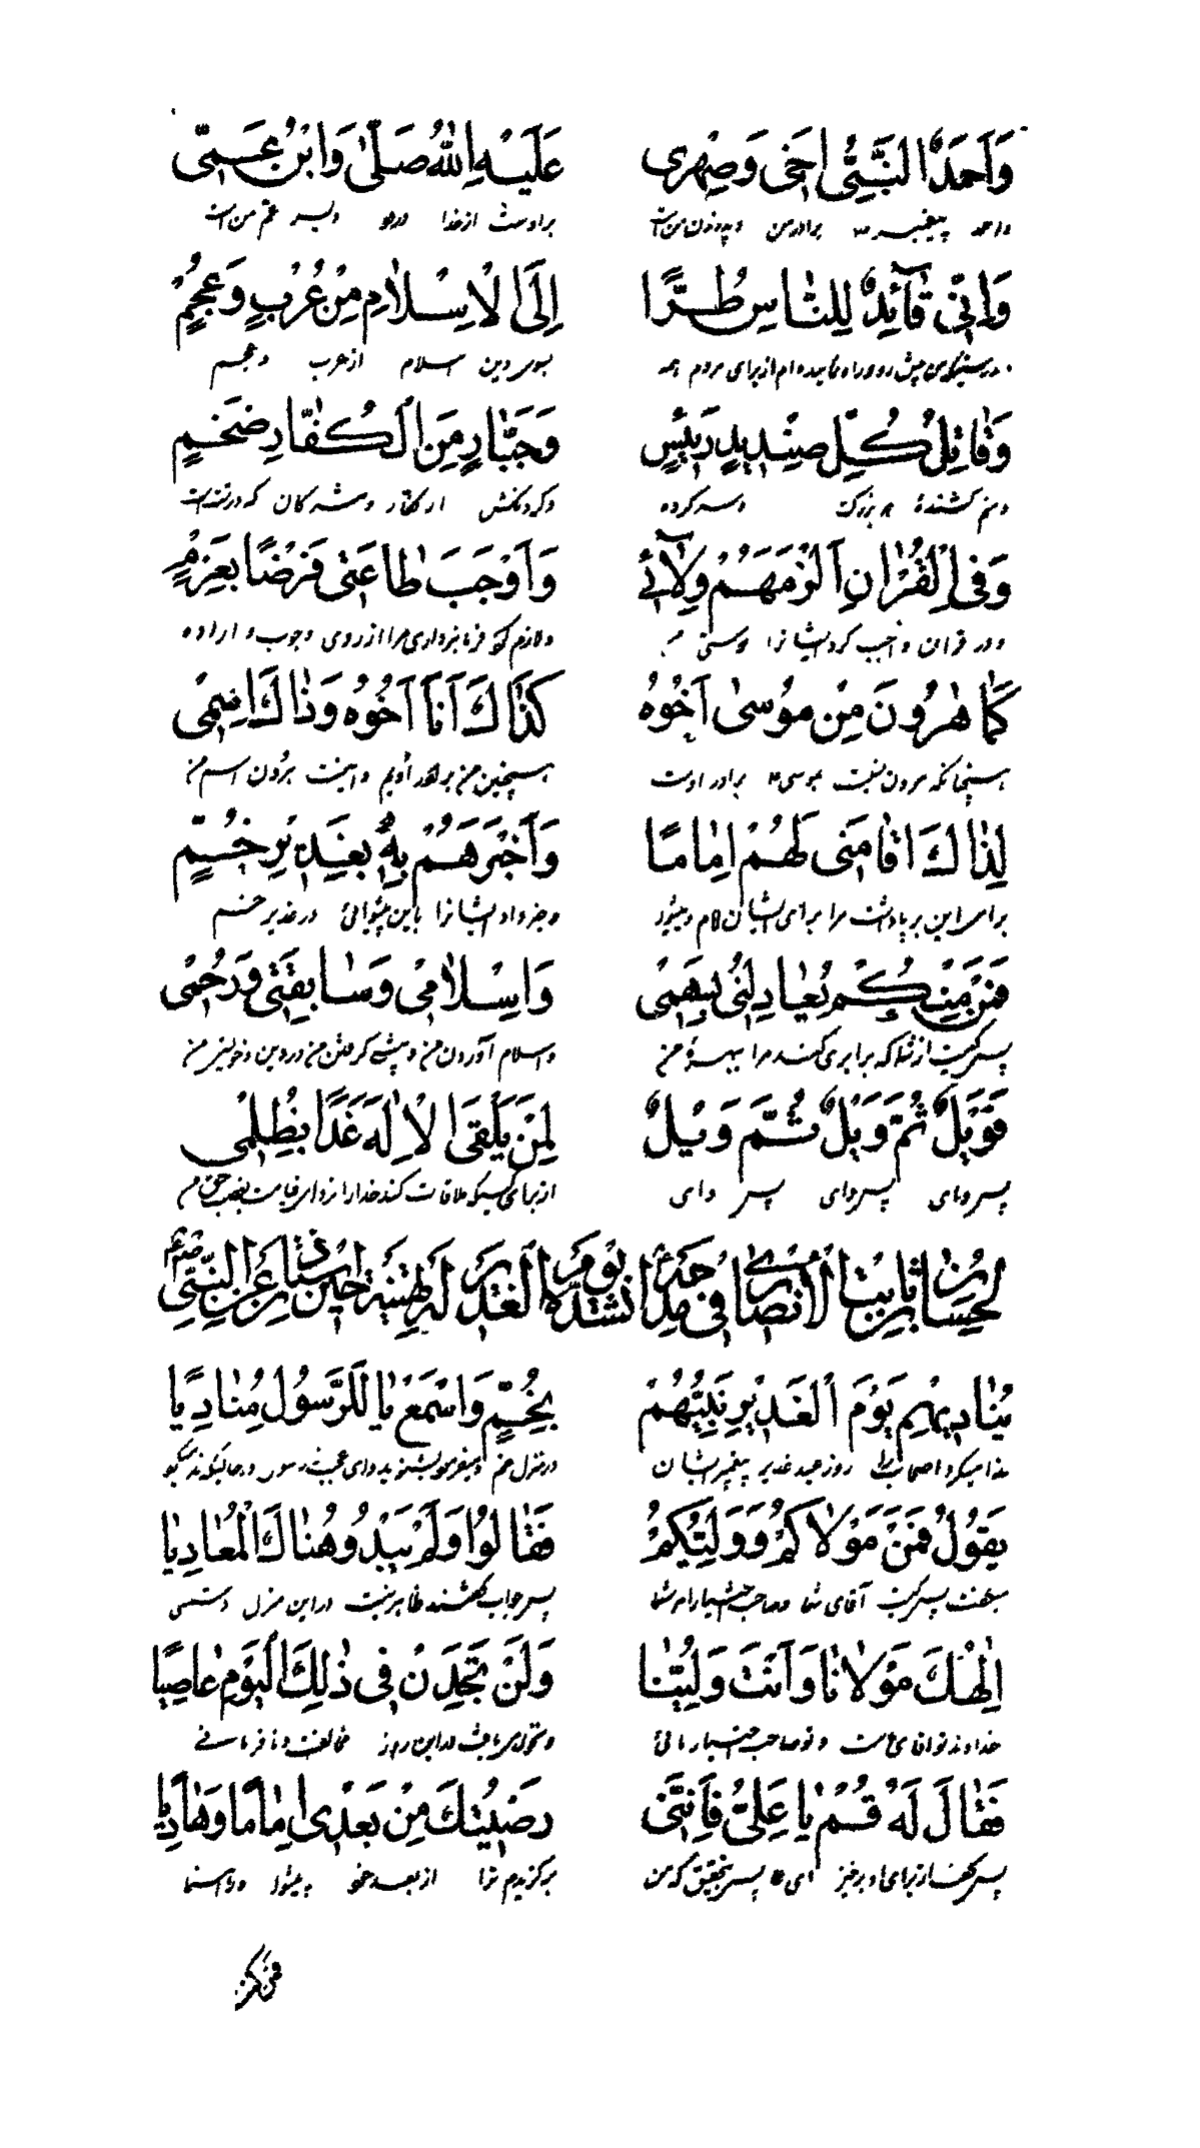 وَاَحمَدٌ النَّبِىُّ اَخى وَصِهْرى عَلَيْهِ اللّٰهُ صَلّىٰ وَابْنُ عَمّى
واحمد پیغمبر برادر من و پدر زن من است براوست از خدا درود و پسر عم من است
وَاِنّى قٰآئِدٌ لِلنّٰاسِ طُرًّا اِلَى الْاِسْلٰامِ مِنْ عُرْبٍ وَعُجْمٍ
بسوی دین اسلام از عرب و عجم
وَقٰاتِلُ كُلِّ صِنْديدٍ رَئيسٍ وَجَبّٰارٍ مِنَ الْكُفّٰارِ ضَخْمٍ
و منم کشندهٔ هر بزرگ و سرکرده و گردنکش از کفار و مشرکان که
وَفِى الْقُرْاٰنِ اَلْزَمَهُمْ وِلٰآئى وَاَوْجَبَ طٰاعَتى فَرْضًا بِعَزْمٍ
و در قرآن واجب کرد ایشانرا دوستی و لازم فرمانبرداری مرا از روی وجوب و اراده
كَمٰا هٰرُونَ مِنْ مُوسىٰ اَخُوهُ كَذٰاكَ اَنَا اَخُوهُ وَذٰاكَ اِسْمى
همچنانکه هرون نسبت بموسی برادر اوست همچنین من برادر اویم و اینست اسم من
لِذٰاكَ اَقٰامَنى لَهُمْ اِمٰامًا وَاَخْبَرَهُمْ بِهٖ بِغَديرِ خُمٍّ
برای این برپاداشت مرا برای ایشان امام و پیشوا و خبر داد ایشانرا باین پیشوائی در غدیر خم
فَمَنْ مِنْكُمْ يُعٰادِلُنى بِسَهْمى وَاِسْلٰامى وَسٰابِقَتى وَرُحْمى
پس کیست از شما که برابری کند مرا ببهرهٔ من و اسلام آوردن من و پیشی گرفتن من در دین و خویشی من
فَوَيْلٌ ثُمَّ وَيْلٌ ثُمَّ وَيْلٌ لِمَنْ يَلْقَى الْاِلٰهَ غَدًا بِظُلْمى
پس وای پس وای پس وای از برای کسیکه ملاقات کند خدا را فردای قیامت
لِحَسّانِ بْنِ ثابِتٍ الْاَنْصارى فى مَدْحِهٖ اَنْشَدَهٗ يَوْمَ الْغَديرِ لَهٗ تَهْنِيَةً حينَ عَنِ النَّبِىِّ
يُنٰاديهِمْ يَوْمَ الْغَديرِ نَبِيُّهُمْ بِخُمٍّ وَاسْمَعْ يٰا لَلرَّسُولِ مُنٰادِيًا
ندا میکرد اصحاب را روز عید غدیر پیغمبر ایشان در منزل خم
يَقُولُ فَمَنْ مَوْلٰاكُمْ وَوَلِيُّكُمْ فَقٰالُوا وَلَمْ يَبْدُو هُنٰاكَ الْمُعٰادِيٰا
میگفت پس کیست آقای شما و صاحب اختیار شما پس جواب گفتند ظاهر نیست در این منزل دشمنی
اِلٰهُكَ مَوْلٰانٰا وَاَنْتَ وَلِيُّنٰا وَلَنْ تَجِدَنْ فى ذٰلِكَ الْيَوْمِ عٰاصِيًا
خداوند تو آقای ماست و تو صاحب اختیار مائی و نخواهی یافت در این روز مخالفت و نافرمانی
فَقٰالَ لَهُ قُمْ يٰا عَلِىُّ فَاِنَّنى رَضيتُكَ مِنْ بَعْدى اِمٰامًا وَهٰادِيًا
پس گفت از برای او برخیز ای علی پس بتحقیق که من برگزیدم ترا از بعد خود پیشوا و راهنما
فمن كنت